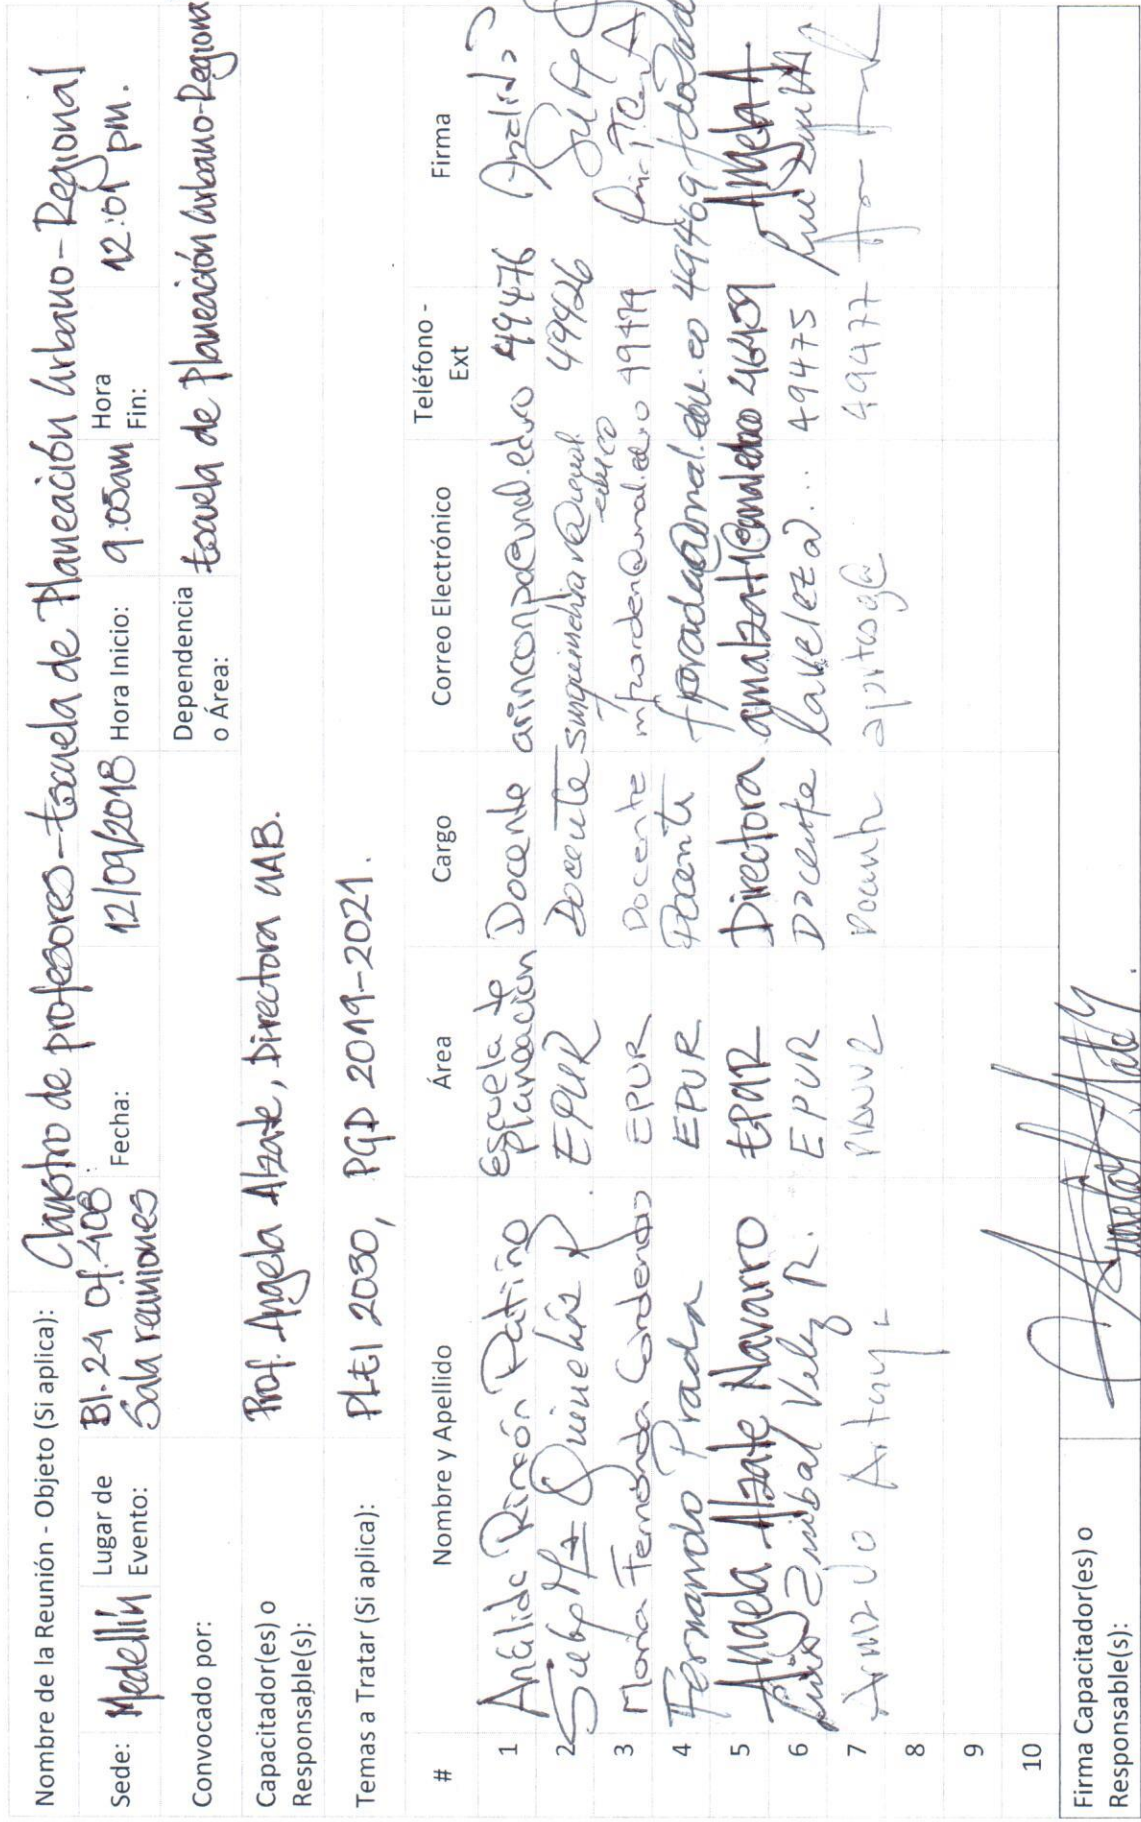 Nombre de la Reunión - Objeto (Si aplica): Claustro de profesores - Escuela de Planeación Urbano-Regional
Sede: Medellín Lugar de Evento: Bl. 24 Of. 408 Sala reuniones Fecha: 12/09/2018 Hora Inicio: 9:05am Hora Fin: 12:01 pm.
Convocado por: Dependencia o Área: Escuela de Planeación Urbano-Regiona
Capacitador(es) o Responsable(s): Prof. Angela Alzate, Directora UAB.
Temas a Tratar (Si aplica): PLEI 2030, PGD 2019-2021.
# Nombre y Apellido Área Cargo Correo Electrónico Teléfono - Ext Firma
1 Análida Rincón Patiño Escuela de Planeación Docente arinconp@unal.edu.co 49476 Análida
2 EPUR Docente 49426
3 María Fernanda Cárdenas EPUR Docente 49474
4 Fernando Prada EPUR Docente fprada@unal.edu.co 49469
5 Angela Alzate Navarro EPUR Directora 49439 Angela A
6 Luis Anibal Vélez R. EPUR Docente laveleza... 49475
7 49477
8
9
10
Firma Capacitador(es) o Responsable(s):